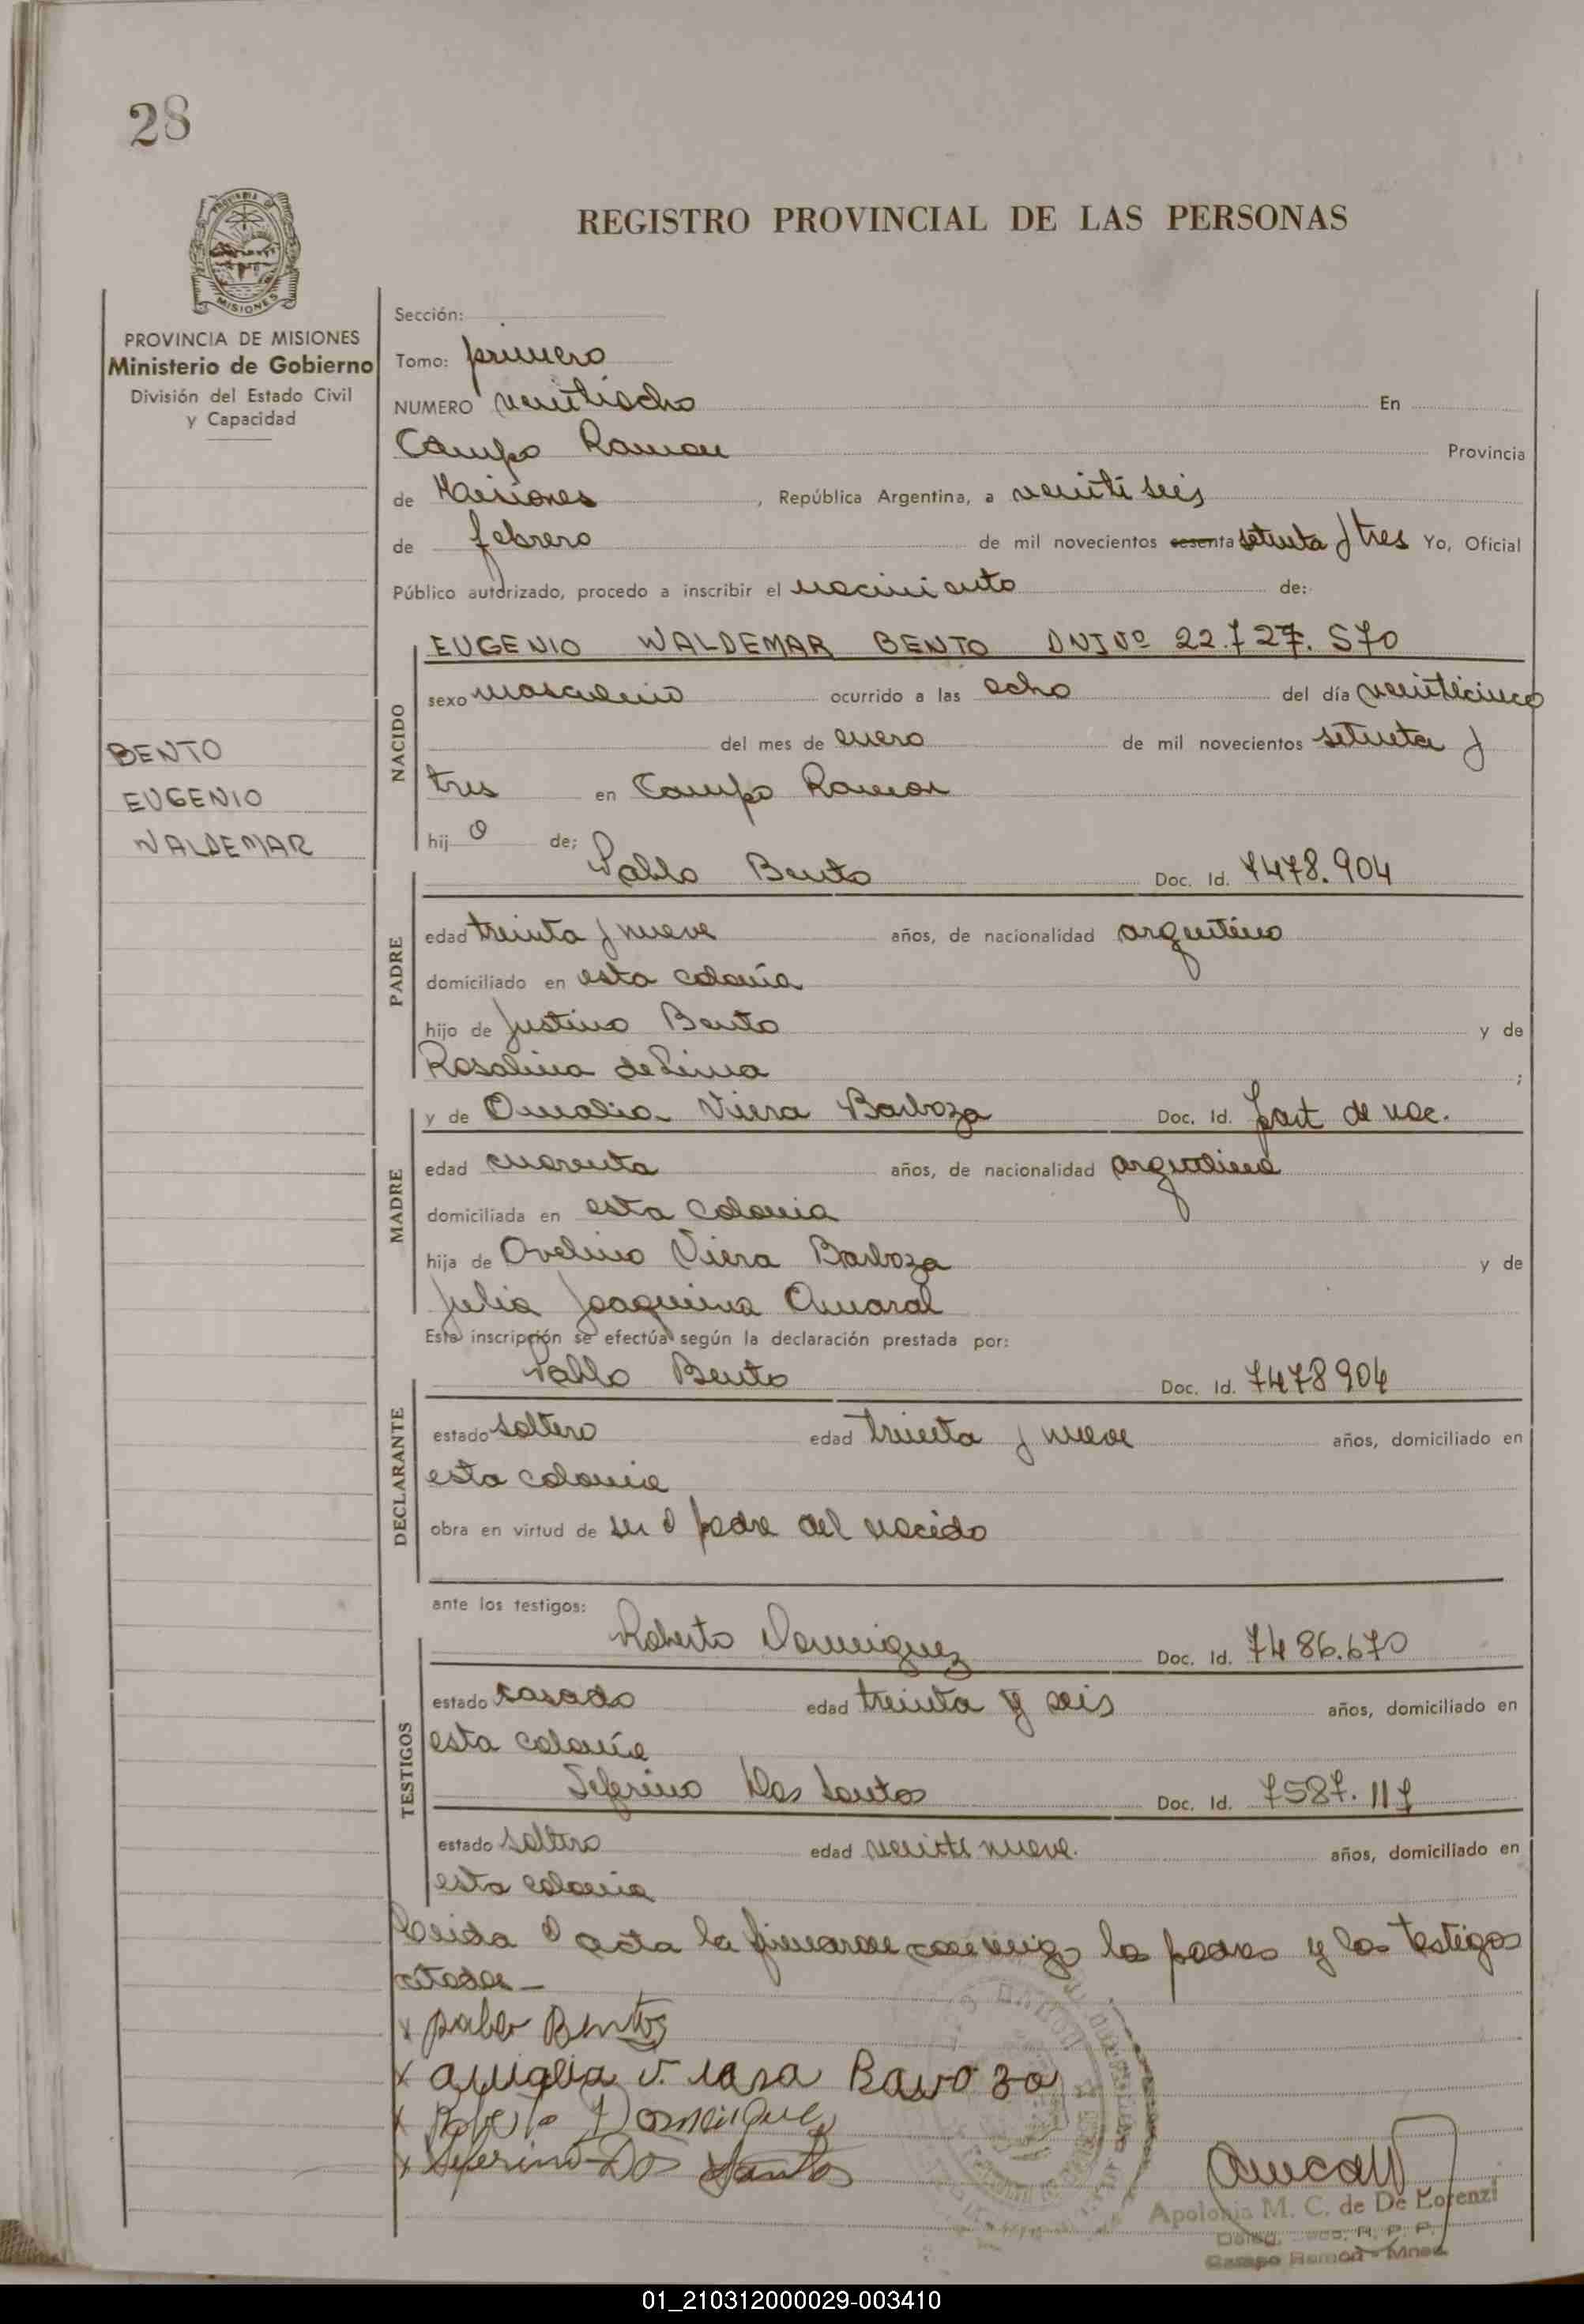 28
REGISTRO PROVINCIAL DE LAS PERSONAS
PROVINCIA DE MISIONES
Ministerio de Gobierno
División del Estado Civil
y Capacidad
BENTO
EUGENIO
WALDEMAR
Sección:
Tomo: primero
NUMERO veintiocho En
Campo Ramon Provincia
de Misiones, República Argentina, a veinti seis
de febrero de mil novecientos sesenta setenta y tres Yo, Oficial
Público autorizado, procedo a inscribir el nacimiento de:
NACIDO
EUGENIO WALDEMAR BENTO DNI Nº 22.727.570
sexo masculino ocurrido a las ocho del día veinticinco
del mes de enero de mil novecientos setenta y
tres en Campo Ramon
hij o de;
PADRE
Pablo Bento Doc. Id. 7478.904
edad treinta y nueve años, de nacionalidad argentino
domiciliado en esta colonia
hijo de Justino Bento y de
Rosalina de Lima ;
MADRE
y de Amalia Viera Barboza Doc. Id. part de nac.
edad cuarenta años, de nacionalidad argentina
domiciliada en esta colonia
hija de Avelino Viera Barboza y de
Julia Joaquina Amaral
Esta inscripción se efectúa según la declaración prestada por:
DECLARANTE
Pablo Bento Doc. Id. 7478904
estado soltero edad treinta y nueve años, domiciliado en
esta colonia
obra en virtud de ser el padre del nacido
ante los testigos:
TESTIGOS
Roberto Domiguez Doc. Id. 7486.670
estado casado edad treinta y seis años, domiciliado en
esta colonia
Seferino Dos Santos Doc. Id. 7587.117
estado soltero edad veinti nueve. años, domiciliado en
esta colonia
Leida el acta la firmaron conmigo los padres y los testigos
citados
x pablo Bento
x amalia viera Barboza
x Roberto Dominguez
x Seferino Dos Santos
Apolonia M. C. de De Lorenzi
Campo Ramon - Mnes.
01_210312000029-003410